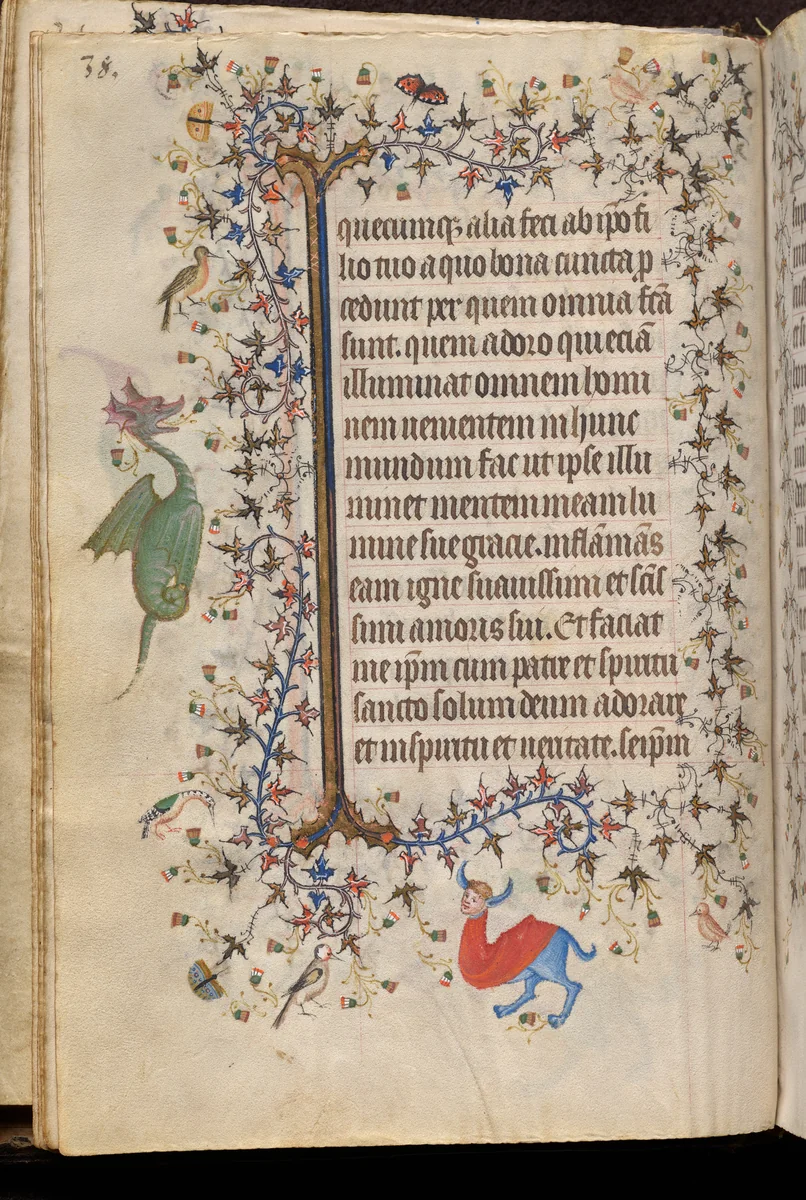 38.
quecumqꝫ alia feci ab ip̄o fi
lio tuo a quo bona cuncta ꝓ
cedunt per quem omnia fc̄a
sunt. quem adoro qui eciā
illuminat omnem homi
nem uenientem in hunc
mundum fac ut ipse illu
minet mentem meam lu
mine sue gracie. inflāmās
eam igne suauissimi et sc̄is
simi amoris sui. Et faciat
me ip̄m cum patre et spiritu
sancto solum deum adorare
et in spiritu et ueritate. seip̄m